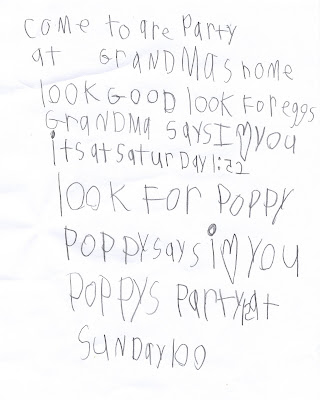 come to are Party
at GRANDMAs home
look GOOD look For eggs
GRANDMA says I ♡ you
itsatsaturday1:22
look FOR POPPY
POPPYsays i ♡ YOU
POPPYS PaRty at
SUNDay 100